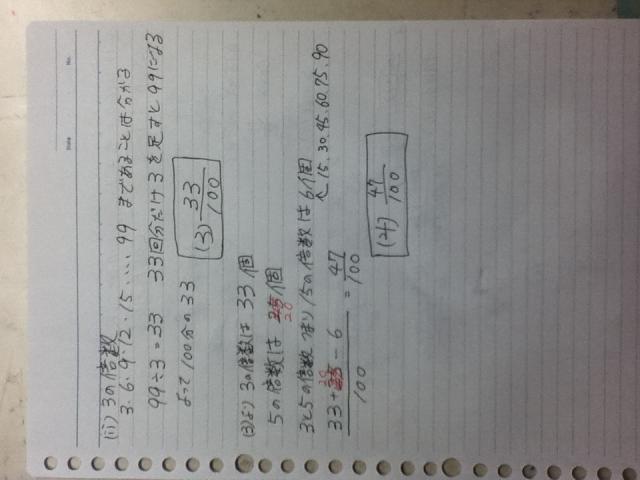 No.
Date
(ii) 3の倍数
3.6.9.12.15.... 99 まであることは分かる
99÷3=33 33回分だけ3を足すと99になる
よって100分の33
(3) 33/100
(3)より 3の倍数は 33個
5の倍数は 20個
3と5の倍数 つまり15の倍数は6個
↑ 15.30.45.60.75.90
33+20-6/100 = 47/100
(4) 47/100